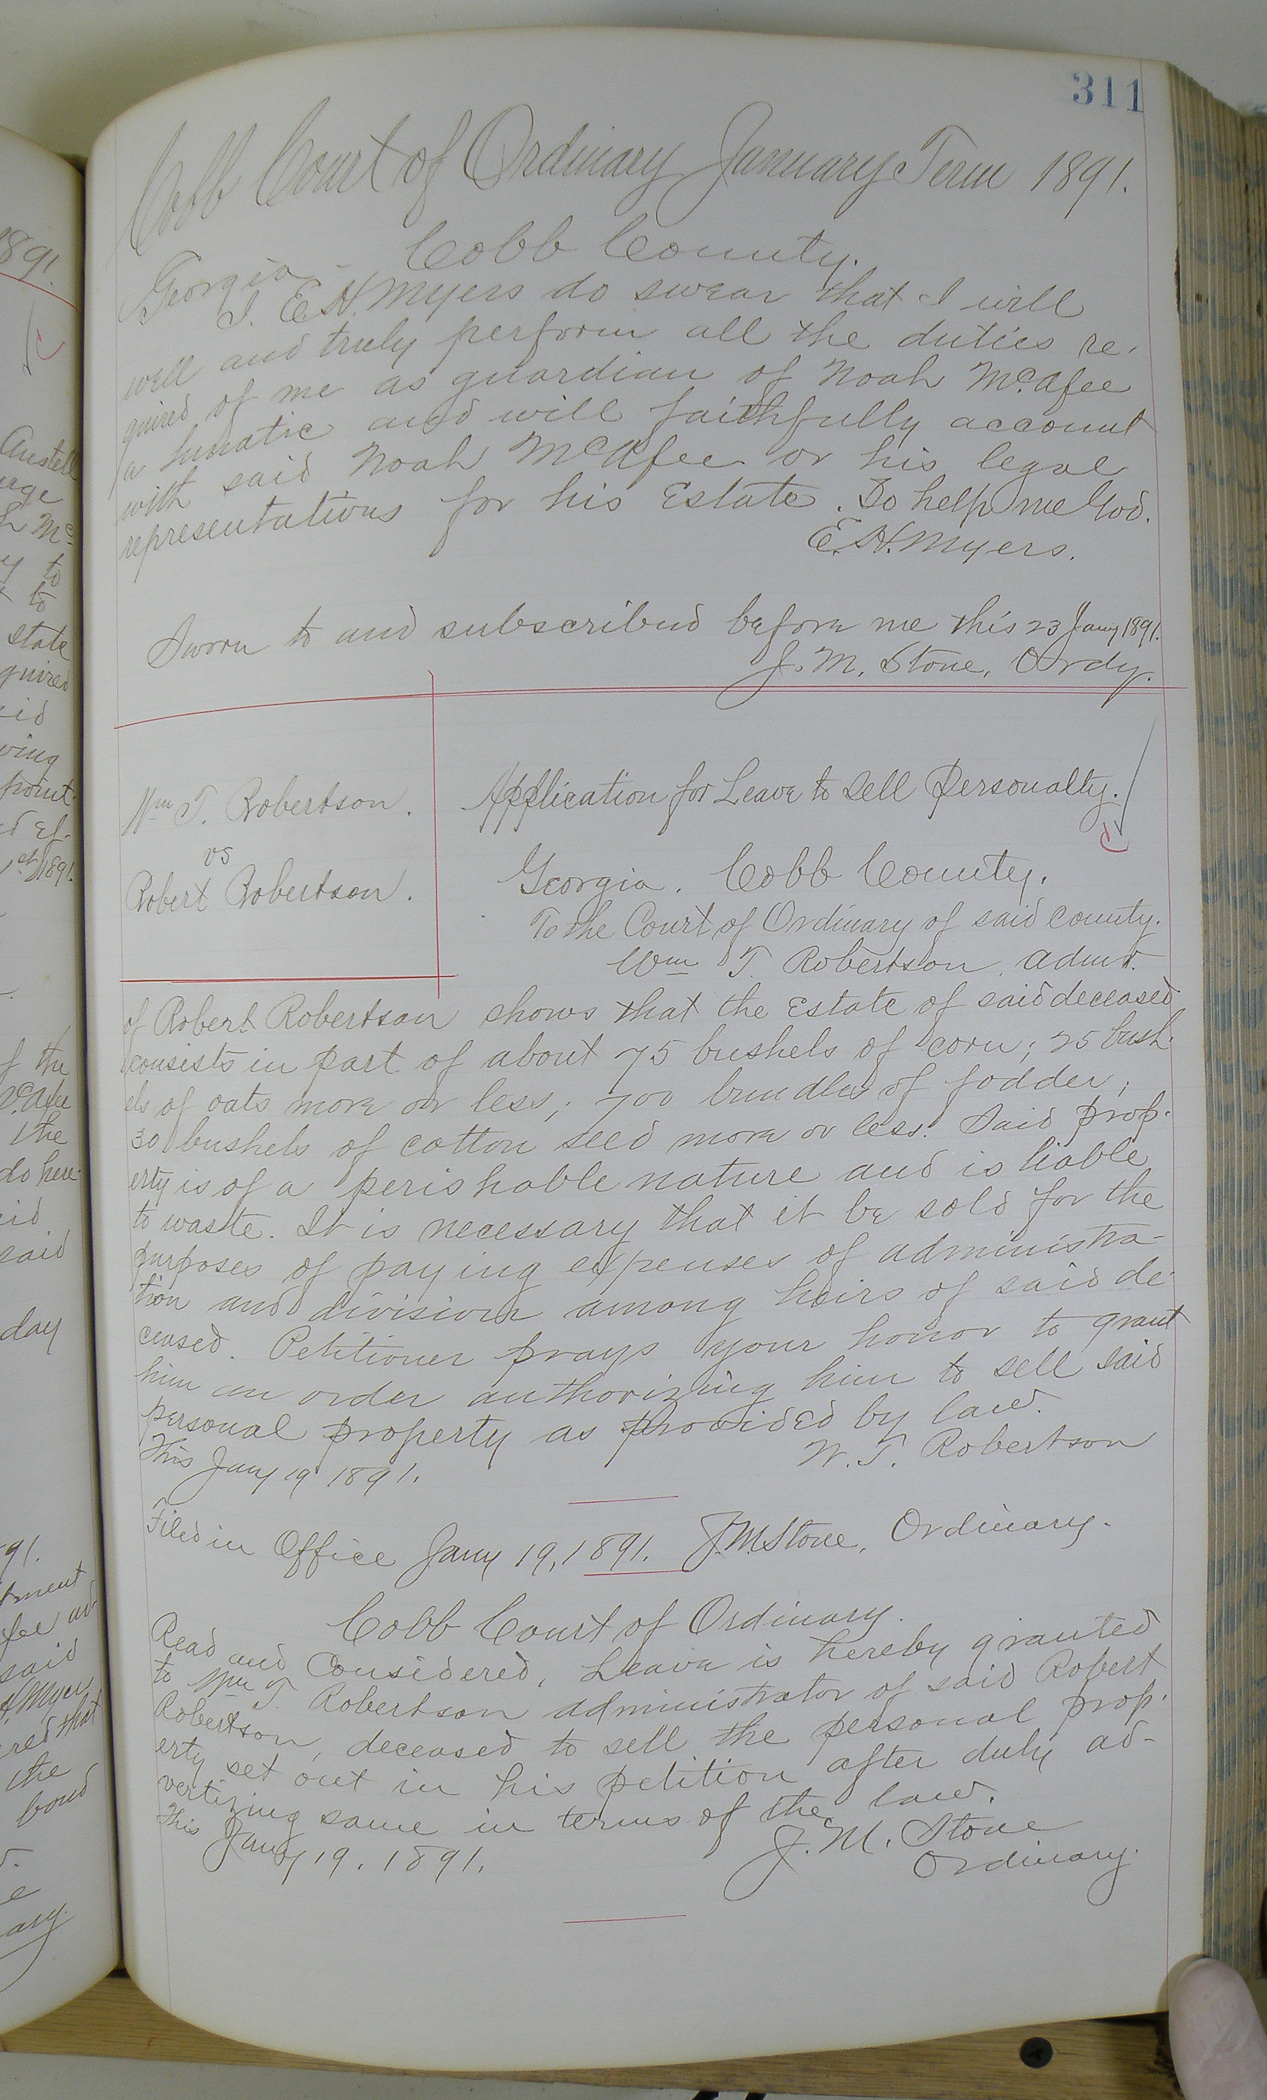 311
Cobb Court of Ordinary January Term 1891.
Georgia - Cobb County.
I. E. H. Myers do swear that I will
well and truly perform all the duties re-
quired of me as guardian of Noah McAfee
a lunatic and will faithfully account
with said Noah McAfee or his legal
representations for his Estate. So help me God.
E. H. Myers.
Sworn to and subscribed before me this 23 Jany 1891.
J. M. Stone, Ordy.
Wm T. Robertson.
vs
Robert Robertson.
Application for Leave to Sell Personalty.
Georgia. Cobb County.
To the Court of Ordinary of said County.
Wm T. Robertson admr.
of Robert Robertson shows that the Estate of said deceased
consists in part of about 75 bushels of corn; 25 bush-
els of oats more or less; 700 bundles of fodder;
30 bushels of cotton seed more or less. Said prop-
erty is of a perishable nature and is liable
to waste. It is necessary that it be sold for the
purposes of paying expenses of administra-
tion and division among heirs of said de-
ceased. Petitioner prays your honor to grant
him an order authorizing him to sell said
personal property as provided by law.
This Jany 19 1891.
W. T. Robertson
Filed in Office Jany 19, 1891. J. M. Stone, Ordinary.
Cobb Court of Ordinary.
Read and Considered, Leave is hereby granted
to Wm T. Robertson administrator of said Robert
Robertson, deceased to sell the personal prop-
erty set out in his petition after duly ad-
vertizing same in terms of the law.
This Jany 19, 1891.
J. M. Stone
Ordinary.